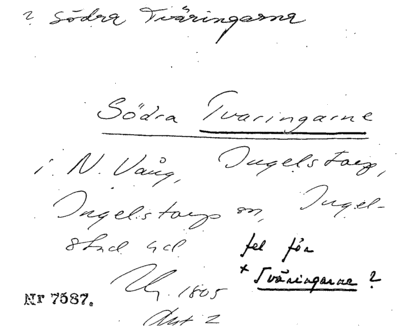 ? södra Tväringarna
Södra Tvaringarne
i N. Vång, Ingelstorp,
Ingelstorps sn, Ingel-
stad hd
fel för
+ Tväringarne ?
1805
Nr 7587.